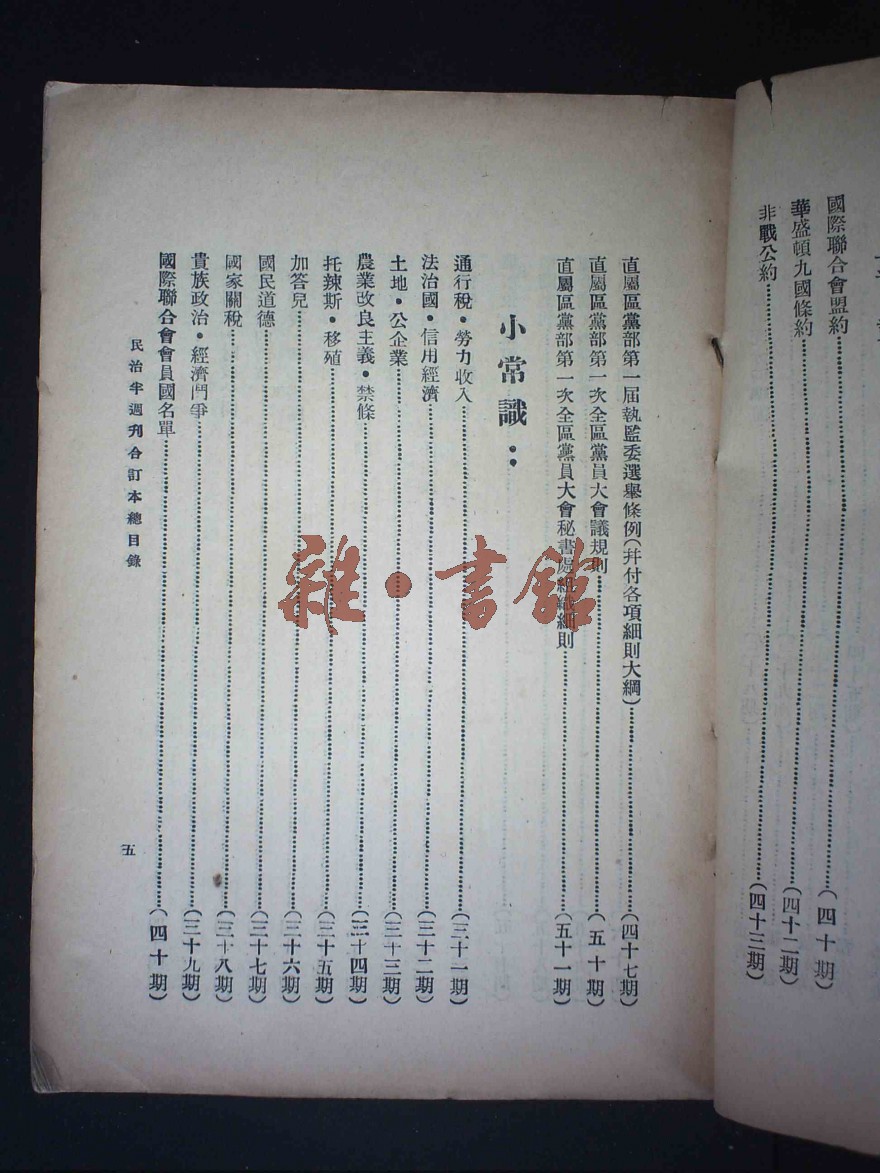 國際聯合會盟約……(四十期)
華盛頓九國條約……(四十二期)
非戰公約……(四十三期)
直屬區黨部第一届執監委選舉條例(幷付各項細則大綱)……(四十七期)
直屬區黨部第一次全區黨員大會議規則……(五十期)
直屬區黨部第一次全區黨員大會秘書處組織細則……(五十一期)
小常識：
通行稅•勞力收入……(三十一期)
法治國•信用經濟……(三十二期)
土地•公企業……(三十三期)
農業改良主義•禁條……(三十四期)
托辣斯•移殖……(三十五期)
加答兒……(三十六期)
國民道德……(三十七期)
國家關稅……(三十八期)
貴族政治•經濟鬥爭……(三十九期)
國際聯合會會員國名單……(四十期)
民治半週刊合訂本總目錄
五
雜•書館